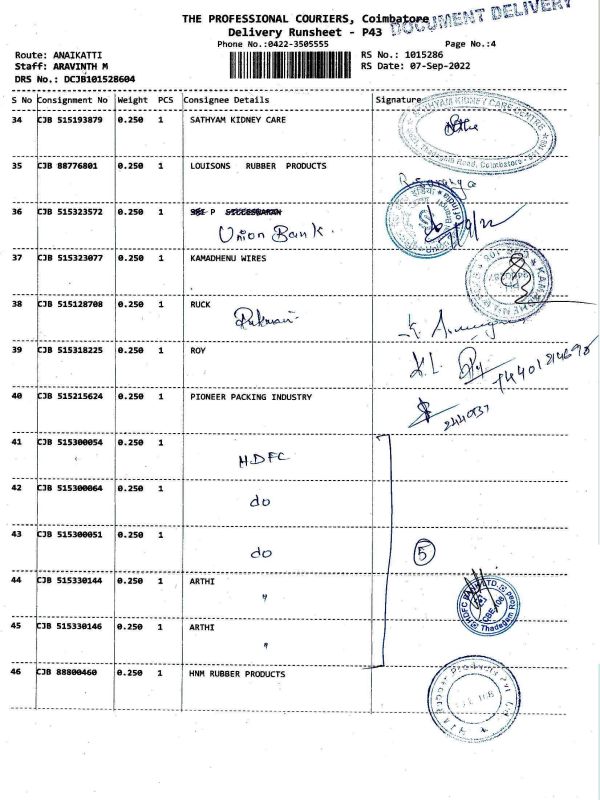 THE PROFESSIONAL COURIERS, Coimbatore
DOCUMENT DELIVERY
Delivery Runsheet - P43
Phone No.:0422-3505555 Page No.:4
Route: ANAIKATTI RS No.: 1015286
Staff: ARAVINTH M RS Date: 07-Sep-2022
DRS No.: DCJB101528604
S No Consignment No Weight PCS Consignee Details Signature
34 CJB 515193879 0.250 1 SATHYAM KIDNEY CARE
SATHYAM KIDNEY CARE CENTRE
Thadagam Road, Coimbatore
35 CJB 88776801 0.250 1 LOUISONS RUBBER PRODUCTS
36 CJB 515323572 0.250 1 P
Union Bank. 7/9/22
of India
37 CJB 515323077 0.250 1 KAMADHENU WIRES
38 CJB 515128708 0.250 1 RUCK
Rukmani
39 CJB 515318225 0.250 1 ROY
K.L. Roy
40 CJB 515215624 0.250 1 PIONEER PACKING INDUSTRY
41 CJB 515300054 0.250 1
HDFC
42 CJB 515300064 0.250 1
do
43 CJB 515300051 0.250 1
do 5
44 CJB 515330144 0.250 1 ARTHI
"
HDFC BANK LTD
CBE-108
Thadagam Road
45 CJB 515330146 0.250 1 ARTHI
"
46 CJB 88800460 0.250 1 HNM RUBBER PRODUCTS